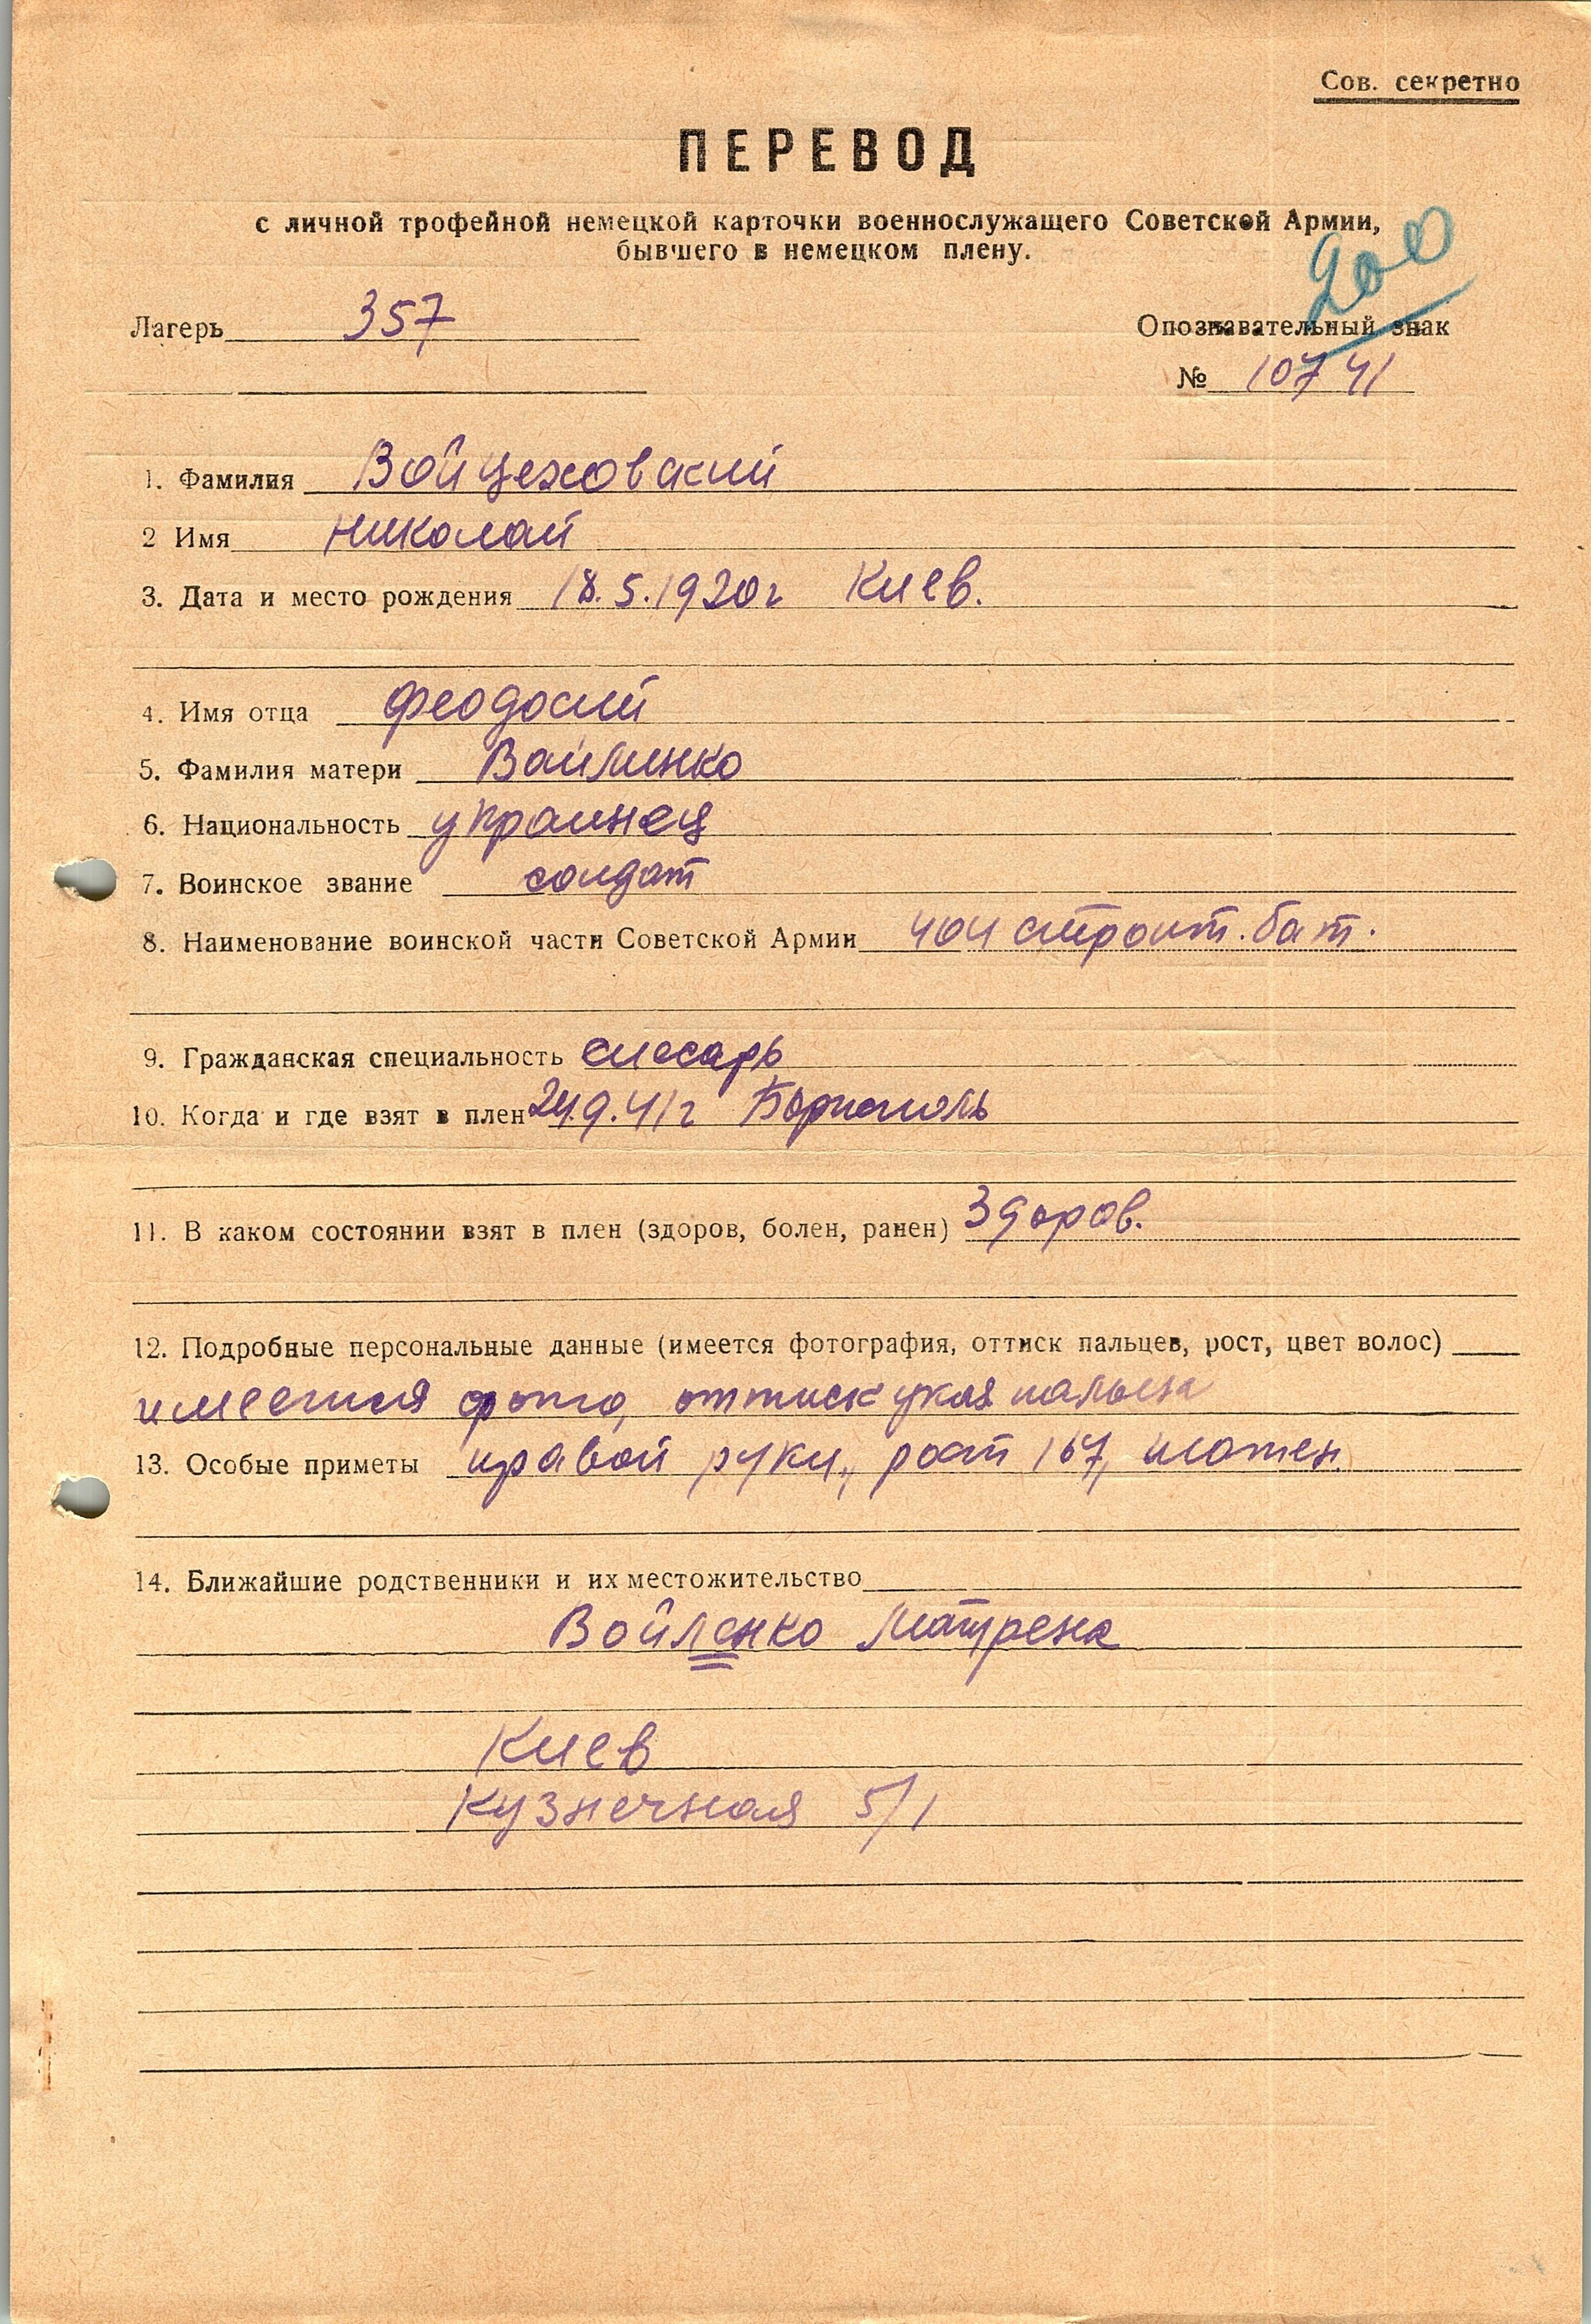 Сов. секретно
ПЕРЕВОД
с личной трофейной немецкой карточки военнослужащего Советской Армии,
бывшего в немецком плену.
200
Лагерь 357
Опознавательный знак
№ 10741
1. Фамилия Войцеховский
2 Имя Николай
3. Дата и место рождения 18.5.1920г Киев.
4. Имя отца Феодосий
5. Фамилия матери Войленко
6. Национальность украинец
7. Воинское звание солдат
8. Наименование воинской части Советской Армии 404 строит. бат.
9. Гражданская специальность слесарь
10. Когда и где взят в плен 24.9.41г Борисполь
11. В каком состоянии взят в плен (здоров, болен, ранен) Здоров.
12. Подробные персональные данные (имеется фотография, оттиск пальцев, рост, цвет волос)
имеется фото, оттиск указ пальца
13. Особые приметы правой руки, рост 167, шатен
14. Ближайшие родственники и их местожительство
Войленко Матрена
Киев
Кузнечная 5/1